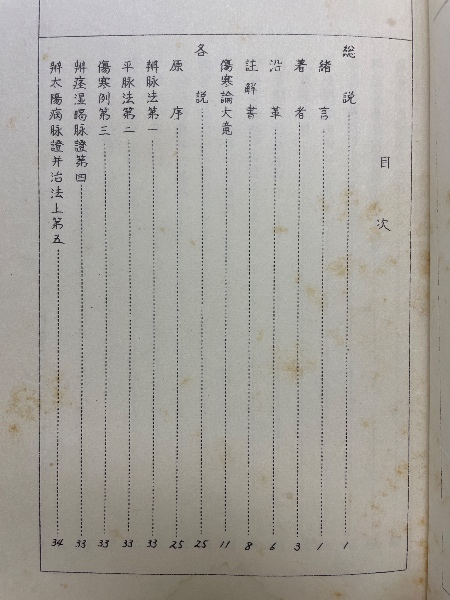 目次
総説 1
緒言 1
著者 3
沿革 6
註解書 8
傷寒論大意 11
各説 25
原序 25
辨脉法第一 33
平脉法第二 33
傷寒例第三 33
辨痙湿暍脉證第四 33
辨太陽病脉證并治法上第五 34